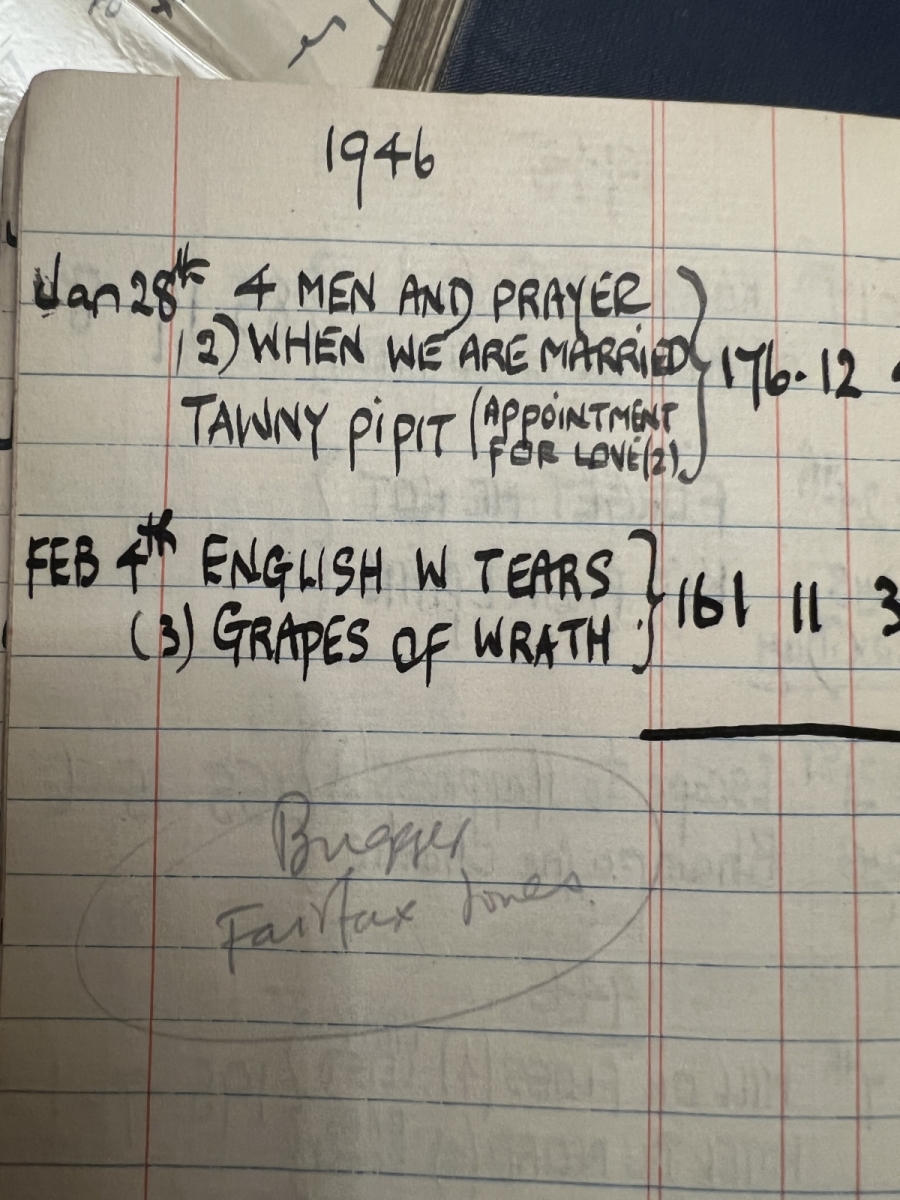 1946
Jan 28th 4 MEN AND PRAYER
(2) WHEN WE ARE MARRIED 176.12
TAWNY PIPIT (APPOINTMENT
FOR LOVE (2)
FEB 4th ENGLISH W TEARS 161 11 3
(3) GRAPES OF WRATH
Bugger
Fairfax Jones.